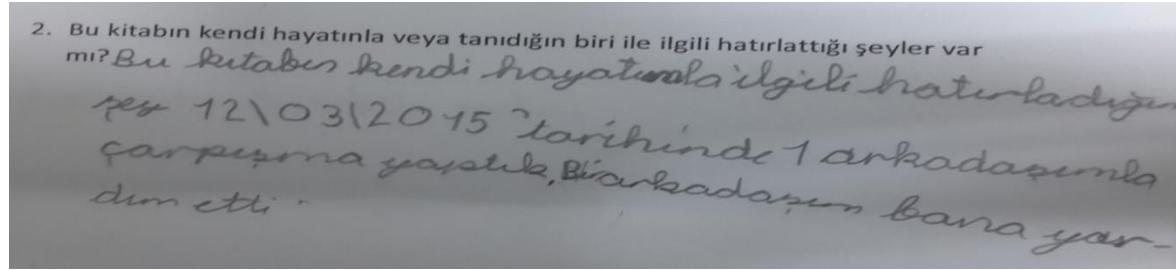 2. Bu kitabın kendi hayatınla veya tanıdığın biri ile ilgili hatırlattığı şeyler var
mı? Bu kitabın kendi hayatımla ilgili hatırladığım
şey 12\03\2015 tarihinde 1 arkadaşımla
çarpışma yaptık, Bir arkadaşım bana yar-
dım etti.